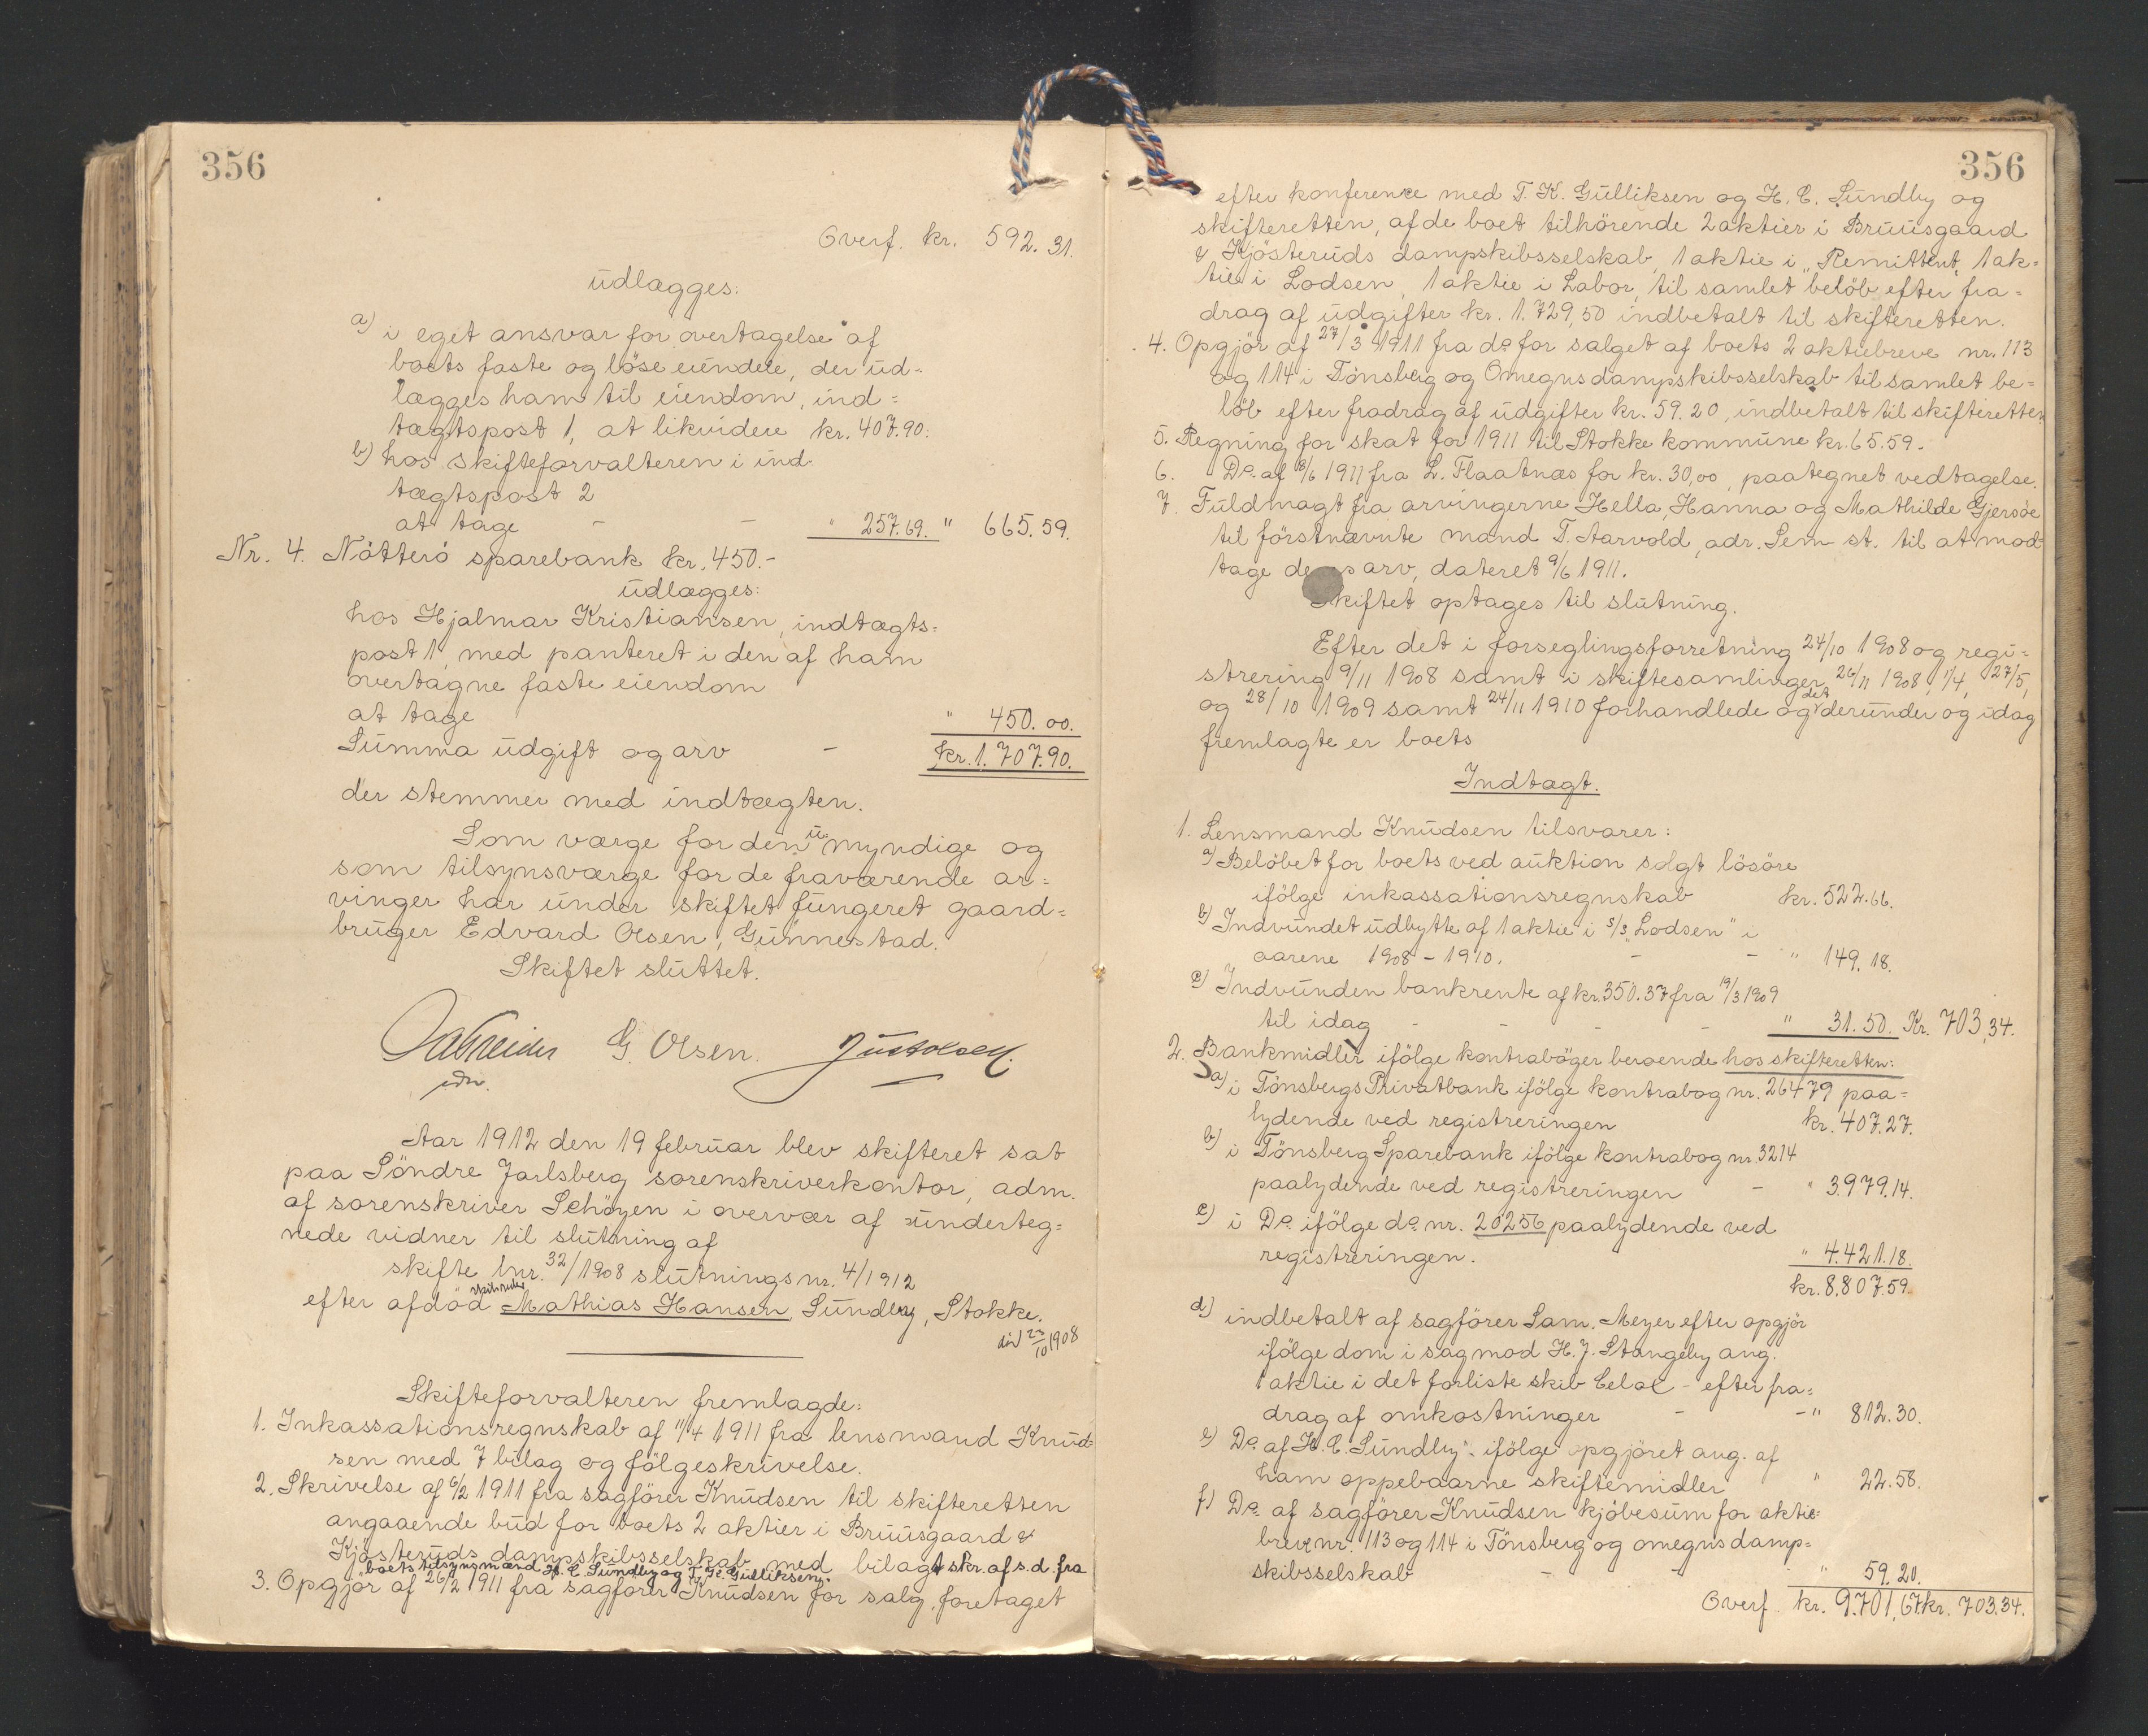 356
Overf. kr. 592.31.
udlægges:
a) i eget ansvar for overtagelse af
boets faste og løse eiendele, der ud=
lægges ham til eiendom, ind=
tægtspost 1, at likvidere kr. 407.90.
b) hos skifteforvalteren i ind-
tægtspost 2
at tage - - " 257.69. " 665.59.
Nr. 4. Nötterö sparebank kr. 450.-
udlægges:
hos Hjalmar Kristiansen, indtægts=
post 1, med panteret i den af ham
overtagne faste eiendom
at tage " 450.00.
Summa udgift og arv - kr. 1.707.90.
der stemmer med indtægten.
Som værge for den umyndige og
som tilsynsværge for de fraværende ar=
vinger har under skiftet fungeret gaard=
bruger Edvard Olsen, Gunnestad.
Skiftet sluttet.
G. Olsen.
Aar 1912 den 19 februar blev skifteret sat
paa Söndre Jarlsberg sorenskriverkontor, adm.
af sorenskriver Schöyen i overvær af underteg=
nede vidner til slutning af
skifte lnr. 32/1908 slutningsnr. 4/1912
efter afdöd skibsreder Mathias Hansen, Sundby, Stokke.
död 23/10 1908
Skifteforvalteren fremlagde:
1. Inkassationsregnskab af 11/4 1911 fra lensmand Knud=
sen med 7 bilag og fölgeskrivelse.
2. Skrivelse af 6/2 1911 fra sagförer Knudsen til skifteretten
angaaende bud for boets 2 aktier i Bruusgaard &
Kjösteruds dampskibsselskab med bilagt skr. af s.d. fra
boets tilsynsmænd H. C. Sundby og T. K. Gulliksen.
3. Opgjör af 26/2 1911 fra sagförer Knudsen for salg, foretaget
356
efter konference med T. K. Gulliksen og H. C. Sundby og
skifteretten, af de boet tilhörende 2 aktier i Bruusgaard
& Kjösteruds dampskibsselskab, 1 aktie i "Remittent", 1 ak=
tie i Lodsen, 1 aktie i Labor, til samlet belöb efter fra=
drag af udgifter kr. 1.729,50 indbetalt til skifteretten.
4. Opgjör af 27/3 1911 fra do for salget af boets 2 aktiebreve nr. 113
og 114 i Tönsberg og Omegns dampskibsselskab til samlet be=
löb efter fradrag af udgifter kr. 59.20, indbetalt til skifteretten.
5. Regning for skat for 1911 til Stokke kommune kr. 65.59.
6. Do. af 8/6 1911 fra L. Flaatnæs for kr. 30,00, paategnet vedtagelse.
7. Fuldmagt fra arvingerne Hella, Hanna og Mathilde Gjersöe
til förstnævnte mand T. Aarvold, adr. Sem st. til at mod=
tage arv, dateret 9/6 1911.
Skiftet optages til slutning.
Efter det i forseglingsforretning 24/10 1908 og regi=
strering 9/11 1908 samt i skiftesamlinger 26/11 1908, 1/4, 27/5,
og 28/10 1909 samt 24/11 1910 forhandlede og det derunder og idag
fremlagte er boets
Indtægt.
1. Lensmand Knudsen tilsvarer:
a) Belöbet for boets ved auktion solgt lösöre
ifölge inkassationsregnskab kr. 522.66.
b) Indvundet udbytte af 1 aktie i s/s "Lodsen" i
aarene 1908 - 1910. - - " 149.18.
c) Indvunden bankrente af kr. 350.37 fra 19/3 1909
til idag - - - - " 31.50. Kr. 703,34.
2. Bankmidler ifölge kontraböger beroende hos skifteretten:
a) i Tönsbergs Privatbank ifölge kontrabog nr. 26479 paa=
lydende ved registreringen kr. 407.27.
b) i Tönsberg Sparebank ifölge kontrabog nr. 3214
paalydende ved registreringen - " 3.979.14.
c) i Do. ifölge do. nr. 20256 paalydende ved
registreringen. " 4.421.18.
kr. 8.807.59.
d) indbetalt af sagförer Sam. Meyer efter opgjör
ifölge dom i sag mod H. J. Stangeby ang.
1 aktie i det forliste skib Celox - efter fra=
drag af omkostninger - -" 812.30.
e) Do. af H. C. Sundby ifölge opgjöret ang. af
ham oppebaarne skiftemidler " 22.58.
f) Do. af sagförer Knudsen kjöbesum for aktie=
breve nr. 113 og 114 i Tönsberg og omegns damp=
skibsselskab - - " 59.20.
Overf. kr. 9.701,67 kr. 703.34.